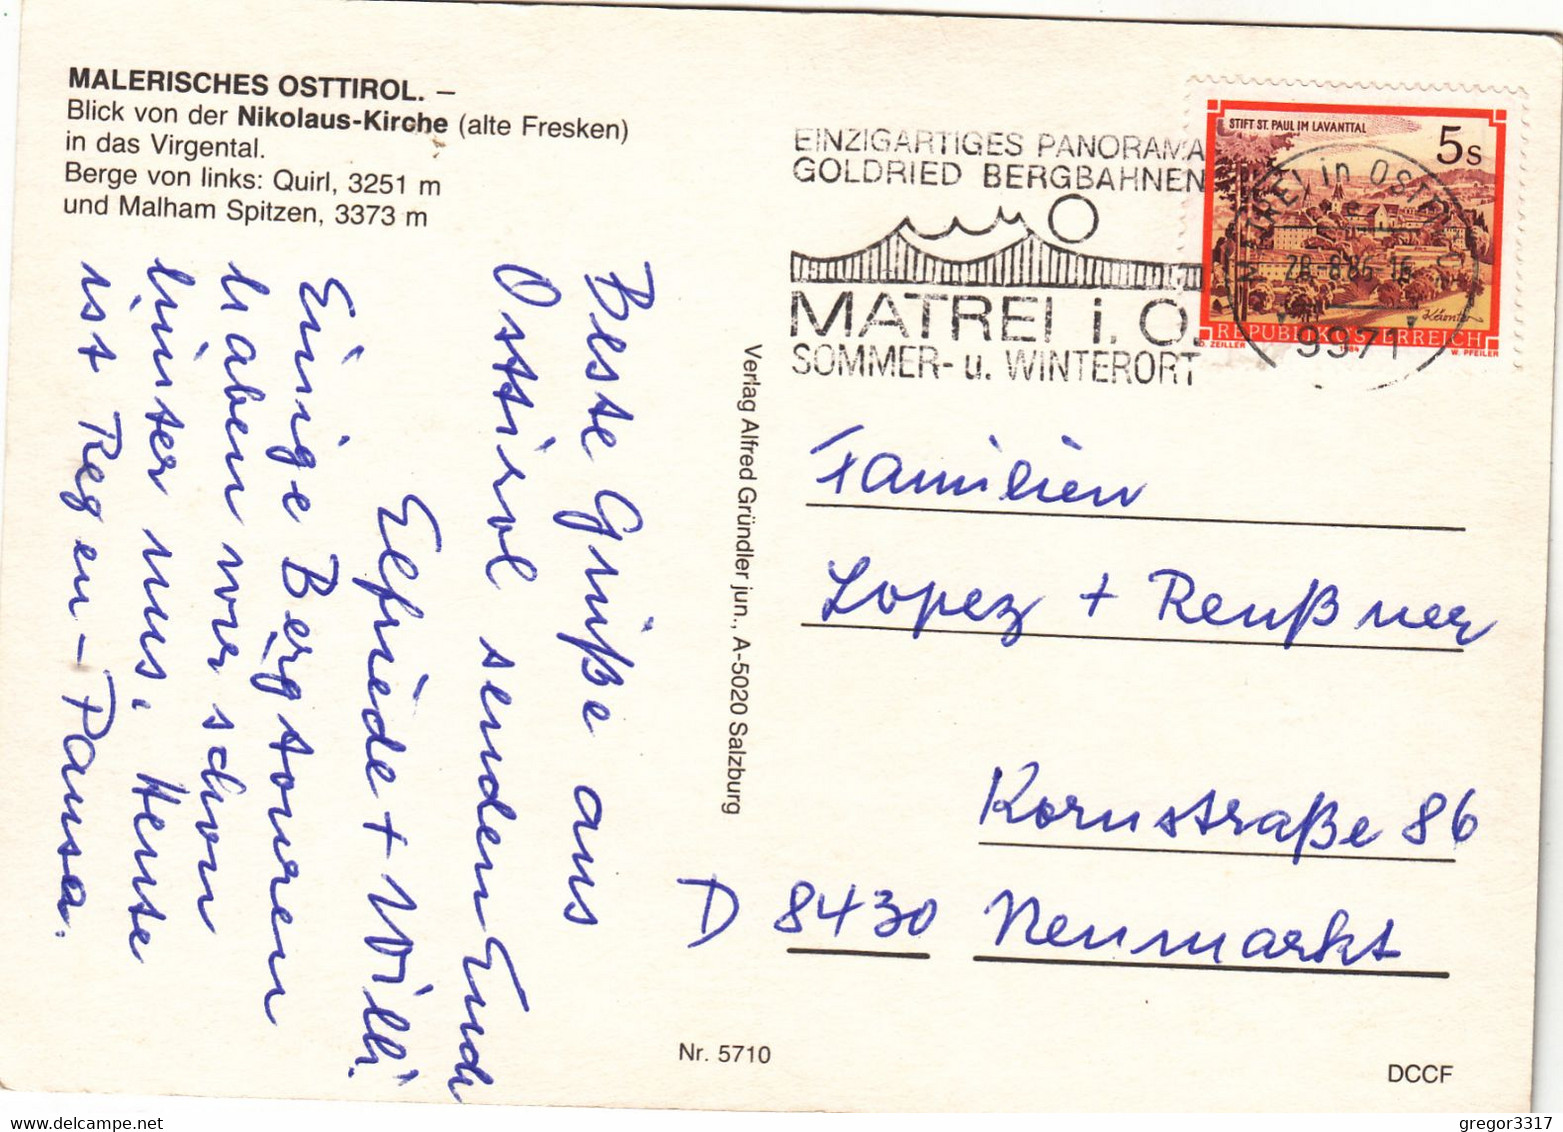 MALERISCHES OSTTIROL. –
Blick von der Nikolaus-Kirche (alte Fresken)
in das Virgental.
Berge von links: Quirl, 3251 m
und Malham Spitzen, 3373 m
EINZIGARTIGES PANORAMA
GOLDRIED BERGBAHNEN
MATREI i. O.
SOMMER- u. WINTERORT
STIFT ST. PAUL IM LAVANTTAL
5s
REPUBLIK ÖSTERREICH
ZEILLER 1984 W. PFEILER
MATREI in OSTTIROL
28.-8.86-16
9971
Beste Grüße aus
Osttirol senden Euch
Elfriede + Willi
Einige Bergtouren
haben wir schon
hinter uns. Heute
ist Regen-Pausa.
Verlag Alfred Gründler jun., A-5020 Salzburg
Familien
Lopez + Reußner
Kornstraße 86
D 8430 Neumarkt
Nr. 5710
DCCF
gregor3317